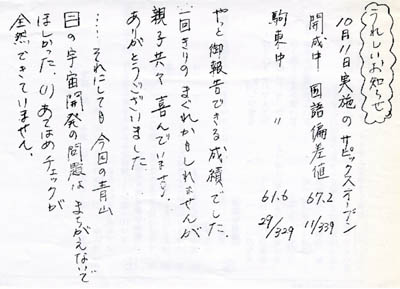 うれしいお知らせ
10月11日実施のサピックスオープン
開成中 国語偏差値 67.2 11/339
駒東中 〃 61.6 29/329
やっと御報告できる成績でした。
一回きりのまぐれかもしれませんが
親子共々喜んでいます。
ありがとうございました
…… それにしても 今回の青山
日の宇宙開発の問題は まちがえないで
ほしかった。(1)あてはめチェックが
全然できていません。